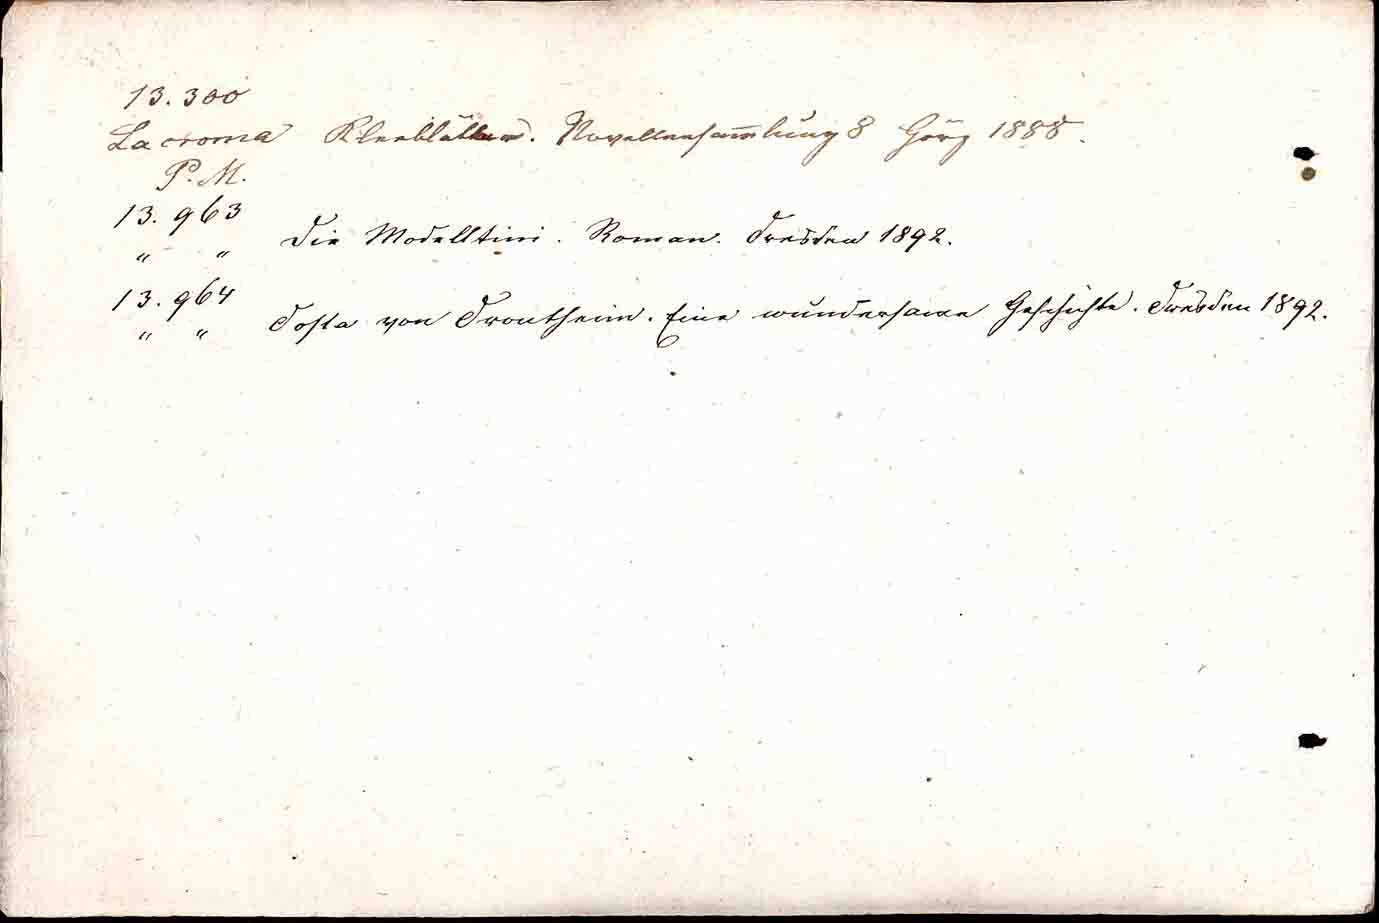 13.300
Lacroma Kleeblätter. Novellensam̅lung 8 Görz 1888.
P. M.
13.963
" " Die Modelltini. Roman. Dresden 1892.
13.964
" " Dosta von Drontheim. Eine wundersame Geschichte. Dresden 1892.